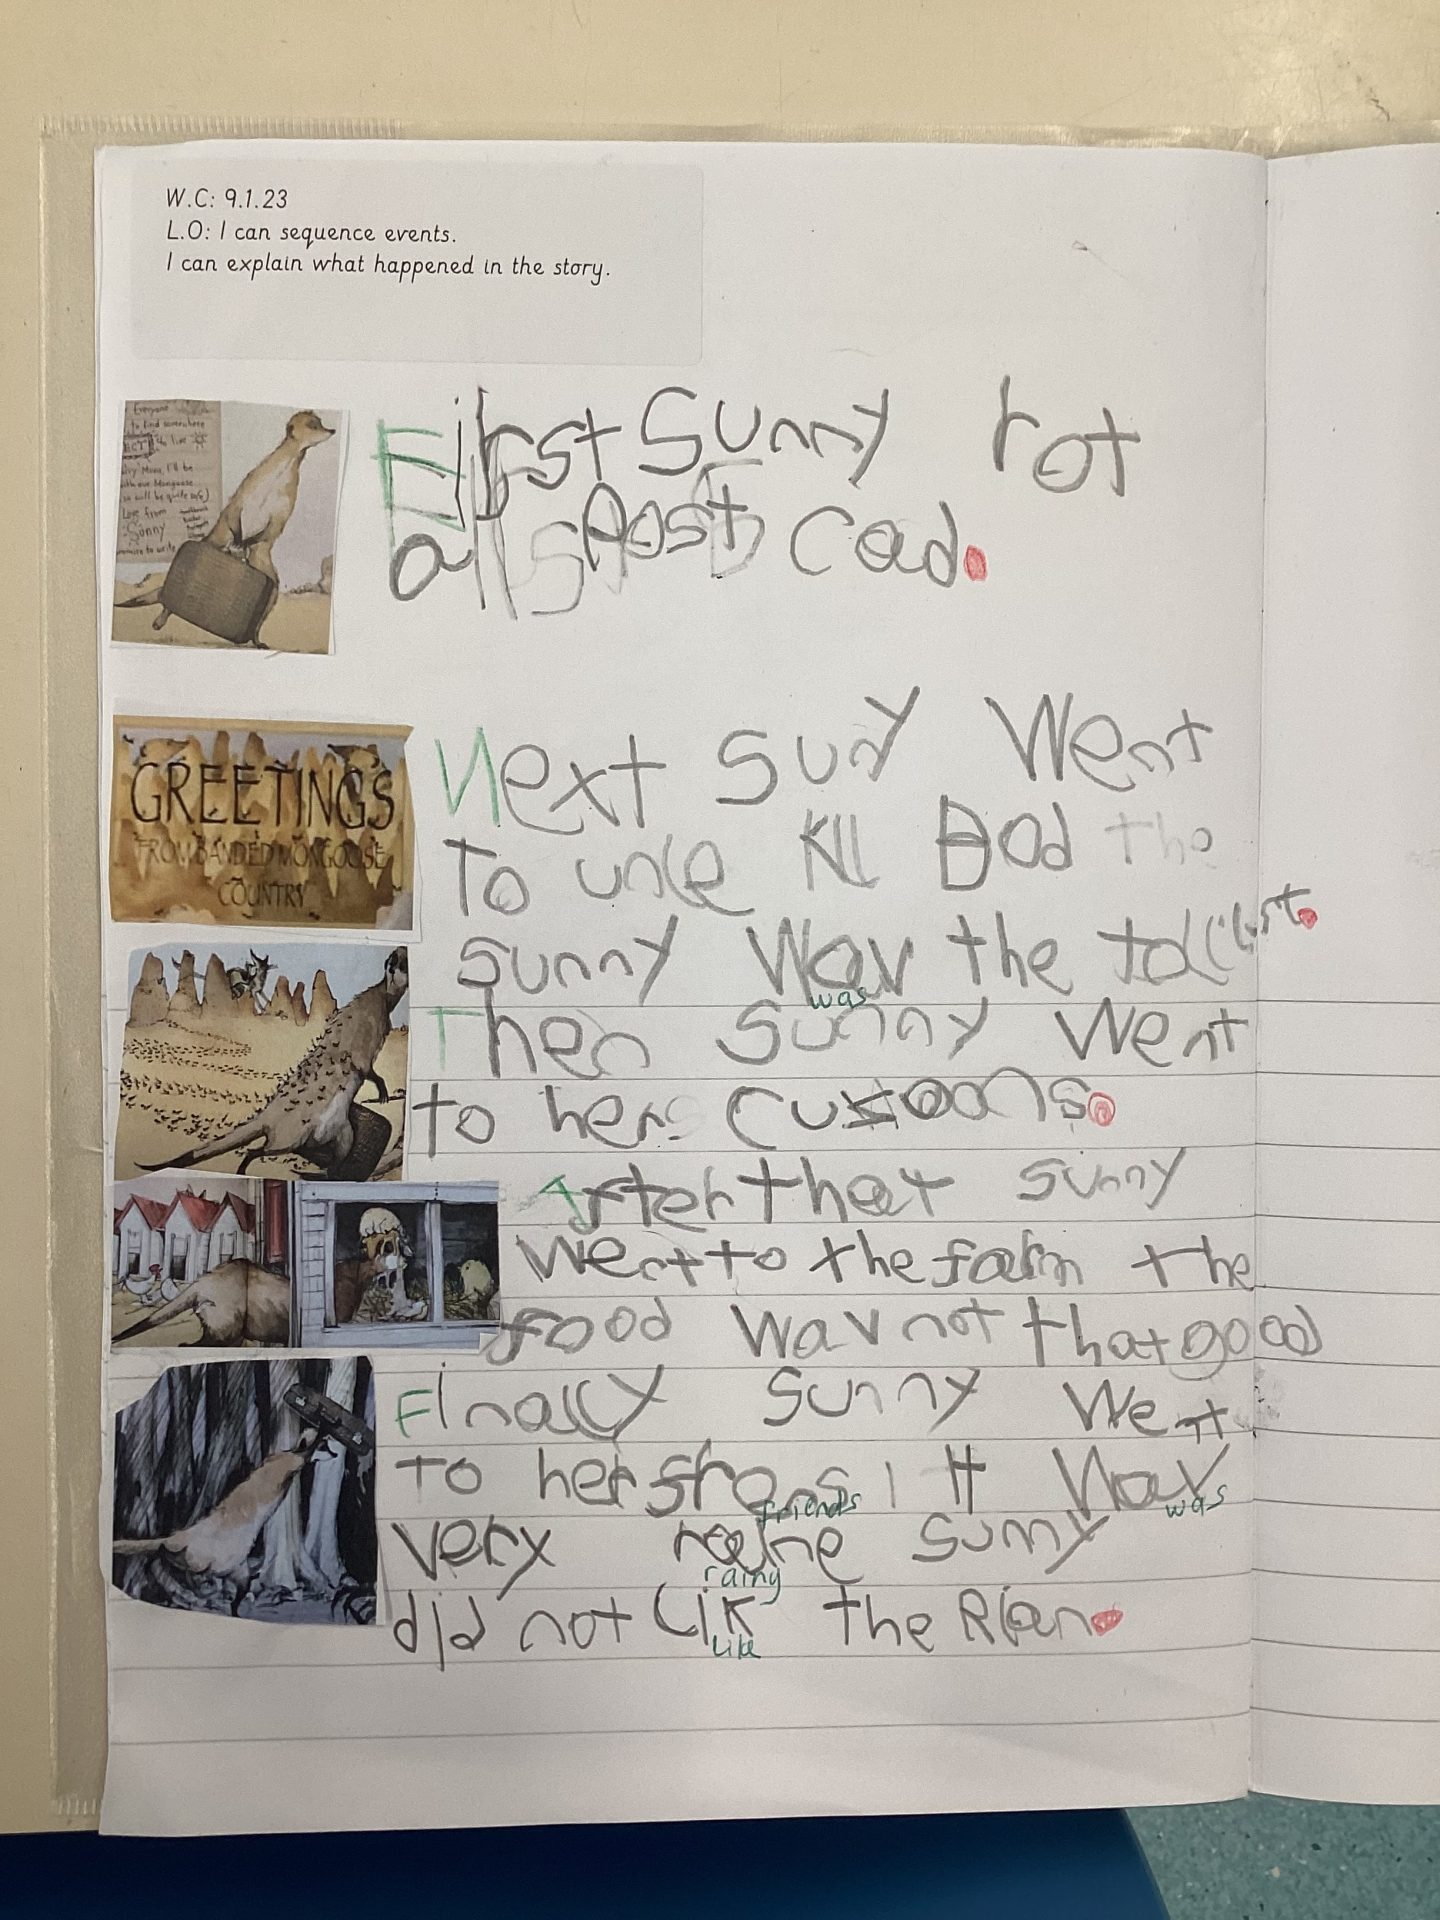 W.C: 9.1.23
L.O: I can sequence events.
I can explain what happened in the story.
Everyone
to find somewhere
to live
Mum, I'll be
with our Mongoose
will be quite safe)
Love from
Sunny
to write
First Sunny rot
all Post cad.
GREETINGS
FROM BANDED MONGOOSE
COUNTRY
Next Suny Went
To uncle Kll Bod the
sunny Wav the tallist.
was
Then Sunny Went
to her
After that sunny
Went to the farm the
food Wav not that good
Finally Sunny Went
To her It Wav
friends was
very raine sunny
rainy
did not Lik the Rian.
Like